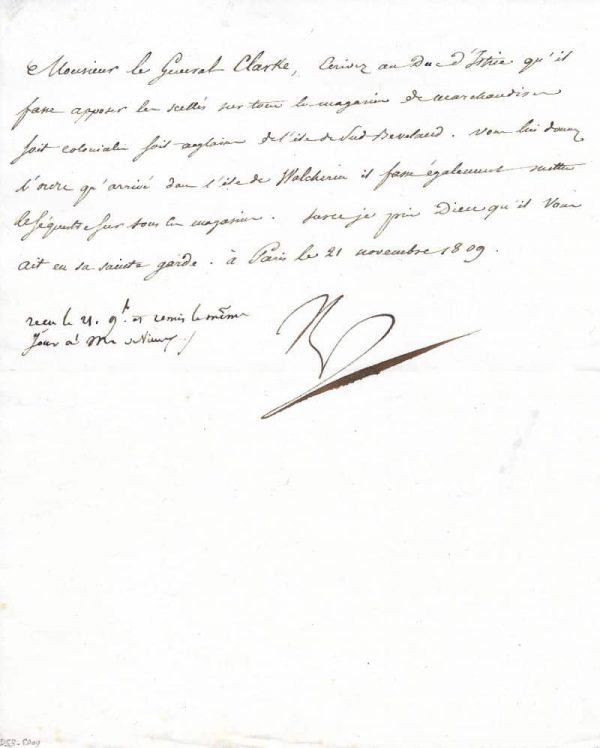 Monsieur le General Clarke, Ecrivez au Duc d'Istrie qu'il
fasse apposer les scellés sur tous les magasins de marchandises
soit coloniales soit anglaises de l'ile de Sud Beveland. vous lui donnez
l'ordre qu'arrivé dans l'ile de Walcheren il fasse également mettre
le séquestre sur tous les magasins. surce je prie Dieu qu'il vous
ait en sa sainte garde. à Paris le 21 novembre 1809.
recu le 21. 9bre et remis le même
Jour à Mr